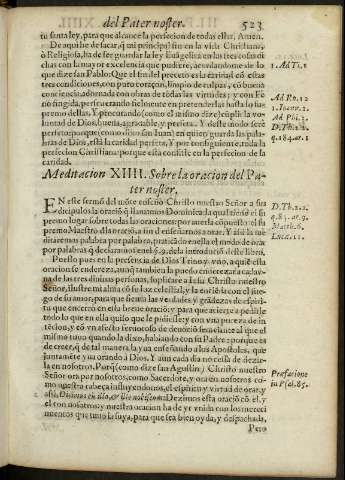 del Pater noster.
523
tu santa ley, para que alcance la perfecion de todas ellas, Amen.
De aqui he de sacar, q̃ mi principal fin en la vida Christiana,
ò Religiosa, ha de ser guardar la ley Evangelica en las tres cosas di
chas con la mayor excelencia que pudiere, acordandome de lo
que dize san Pablo: Que el fin del precepto es la caridad cõ estas
tres condiciones, con puro coraçon, limpio de culpas, cõ buena
conciencia, adornada con obras de todas las virtudes; y con Fè
no fingida, perseverando fielmente en pretenderlas hasta lo su
premo dellas, Y procurando (como el mismo dize) cũplir la vo-
luntad de Dios, buena, agradable, y perfeta. Y deste modo serè
perfeto: porque (como dixo san Iuan) en quien guarda las pala-
bras de Dios, està la caridad perfeta, Y por consiguiente, toda la
perfecion Christiana: porque esta consiste en la perfecion de la
caridad.
1. Ad Ti. 1
Ad Ro. 12
1. Ioan. 2.
Ad Phi. 3.
D. Th. 2. 2.
q. 184. ar. 1
Meditacion XIIII. Sobre la oracion del Pa-
ter noster.
EN este sermõ del mõte enseñò Christo nuestro Señor a sus
dicipulos la oraciõ q̃ llamamos Dominica: la qual tiene el su
premo lugar sobre todas las oraciones: por averla cõpuesto el su
premo Maestro dla oraciõ, a fin d enseñarnos a orar. Y assi la me
ditaremos palabra por palabra, praticãdo en ella el modo de orar
por palabras, que declaramos en el §. 9. de la introdució deste libro.
D. Th. 2. 2.
q. 83. ar. 9.
Matth. 6.
Luc. 11.
Puesto pues en la presencia de Dios Trino y vno, aquiẽ esta
oracion se endereza, aunq̃ tambien la puedo enderezar a cada v-
na de las tres divinas personas, suplicarè a Iesu Christo nuestro
Señor, ilustre mi alma cõ su luz celestial, y la encienda con el fue-
go de su amor, para que sienta las verdades y grãdezas de espiri-
tu que encerrò en esta breve oraciõ; y para que acierte a pedille
todo lo que en ella quiso que le pidiesse; y con vna pureza de in
tẽcion, y cõ vn afecto fervoroso de devociõ semejante al que el
mismo tuvo quando la dixo, hablando con su Padre: porque es
de creer, q̃ de tal manera, la yva enseñando a los Apostoles, que
juntamẽte yva orando a Dios. Y aun cada dia no cessa de dezir-
la en nosotros. Porq̃ (como dize san Agustin) Christo nuestro
Señor ora por nosotros, como Sacerdote, y ora en nosotros co-
mo nuestra cabeça influyendonos, el espiritu y virtud de orar, y
assi, Dezimos en illo, & ille nobiscum: Dezimos esta oraciõ cõ el, y
el con nosotros: y nuestra oracion ha de yr vnida con los mereci
mientos que tuvo la suya, para que sea bien oyda, y despachada,
Præfatione
in Psal. 85.
Pero